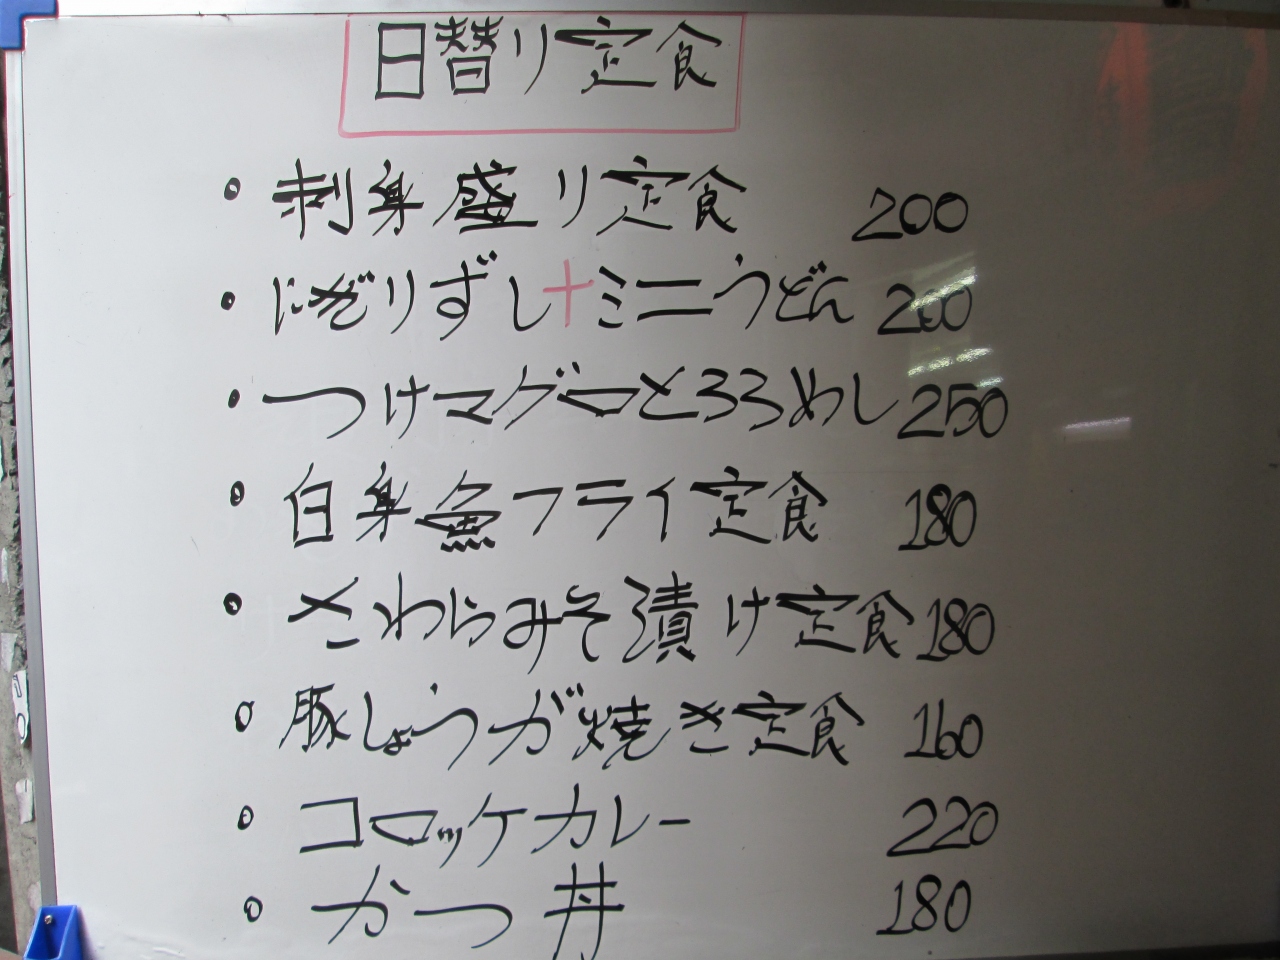 日替り定食
• 刺身盛り定食 200
• にぎりずし+ミニうどん 200
• つけマグロとろろめし 250
• 白身魚フライ定食 180
• さわらみそ漬け定食 180
• 豚しょうが焼き定食 160
• コロッケカレー 220
• かつ丼 180